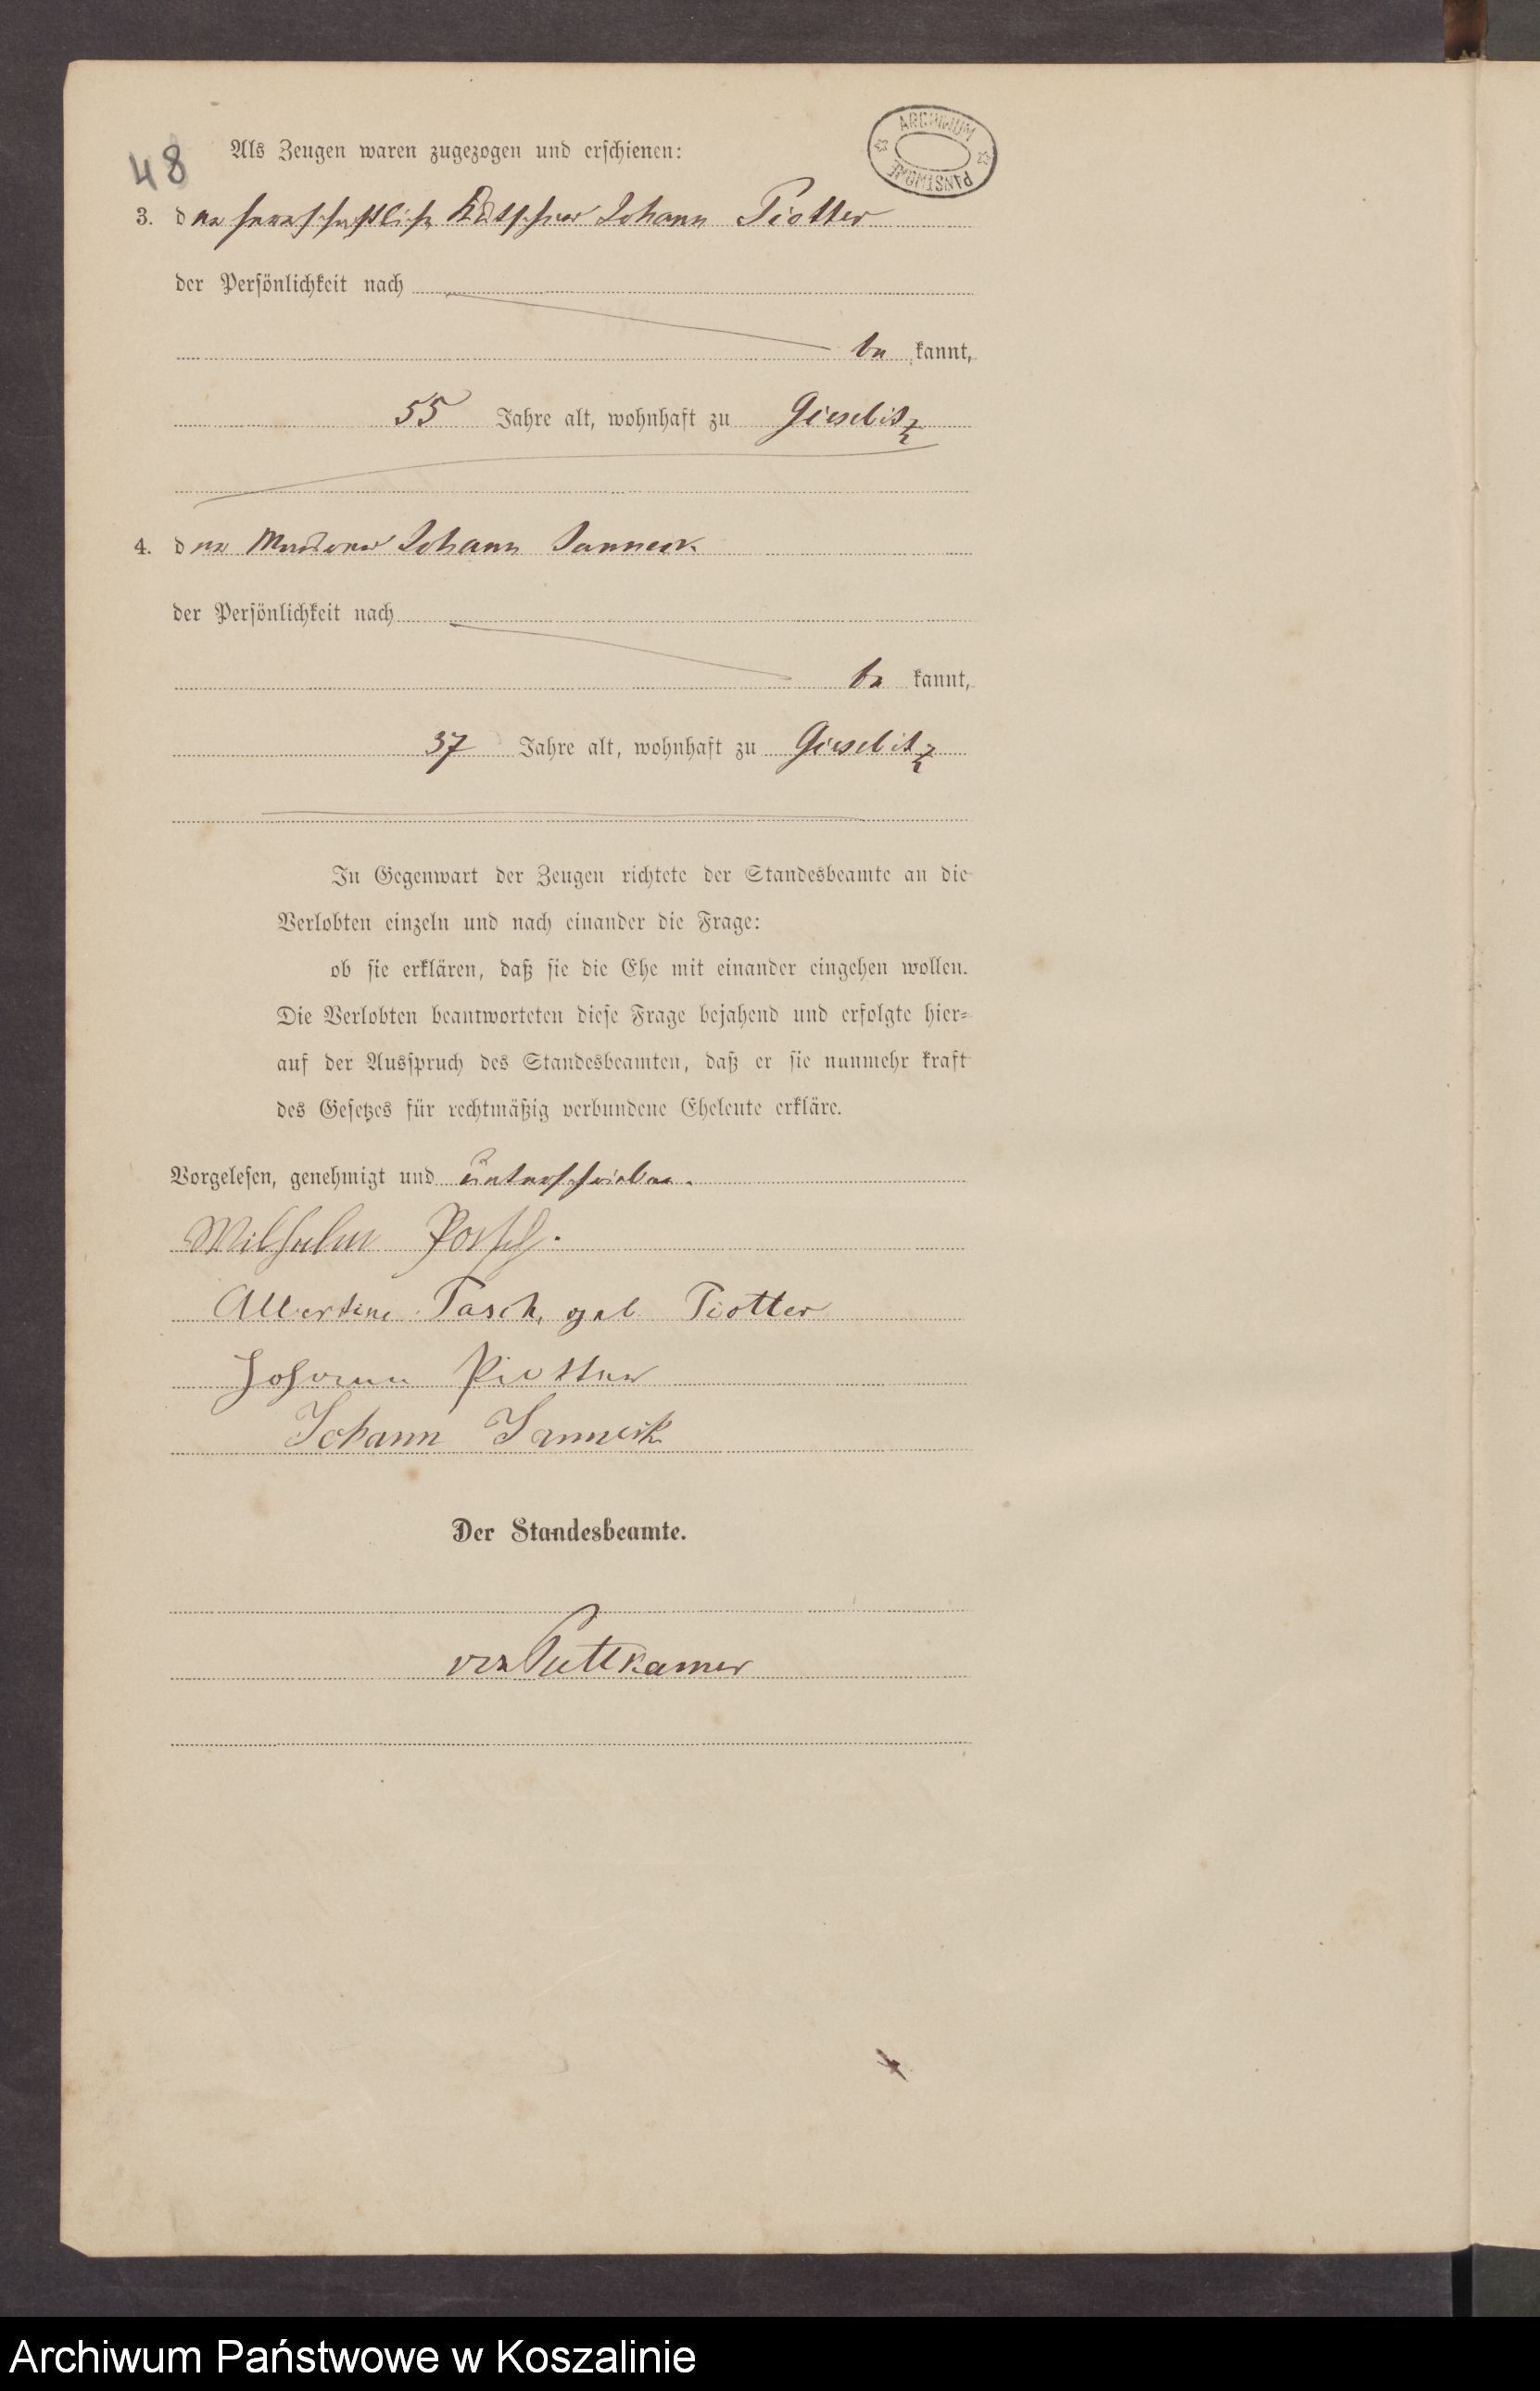 48
Als Zeugen waren zugezogen und erschienen:
ARCHIWUM PAŃSTWOWE
3. der herrschaftliche Kutscher Johann Piotter
der Persönlichkeit nach
be kannt,
55 Jahre alt, wohnhaft zu Gieselitz
4. der Johann Janneck
der Persönlichkeit nach
be kannt,
37 Jahre alt, wohnhaft zu Gieselitz
In Gegenwart der Zeugen richtete der Standesbeamte an die
Verlobten einzeln und nach einander die Frage:
ob sie erklären, daß sie die Ehe mit einander eingehen wollen.
Die Verlobten beantworteten diese Frage bejahend und erfolgte hier=
auf der Ausspruch des Standesbeamten, daß er sie nunmehr kraft
des Gesetzes für rechtmäßig verbundene Eheleute erkläre.
Vorgelesen, genehmigt und unterschrieben.
Wilhelm
Albertine Pasch, geb Piotter
Johann Piotter
Johann Janneck
Der Standesbeamte.
von Puttkamer
Archiwum Państwowe w Koszalinie